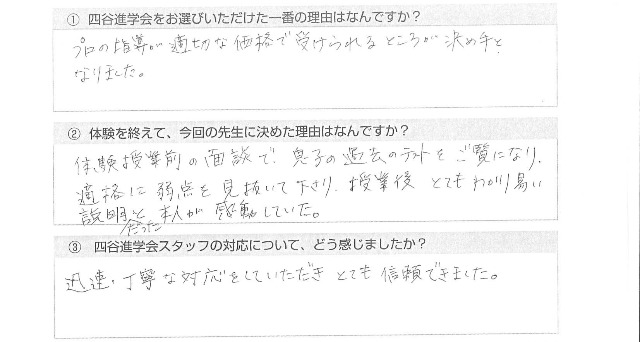 ① 四谷進学会をお選びいただけた一番の理由はなんですか？
プロの指導が適切な価格で受けられるところが決め手と
なりました。
② 体験を終えて、今回の先生に決めた理由はなんですか？
体験授業前の面談で、息子の過去のテストをご覧になり、
適格に弱点を見抜いて下さり、授業後とてもわかり易い
説明だったと本人が感動していた。
③ 四谷進学会スタッフの対応について、どう感じましたか？
迅速・丁寧な対応をしていただきとても信頼できました。